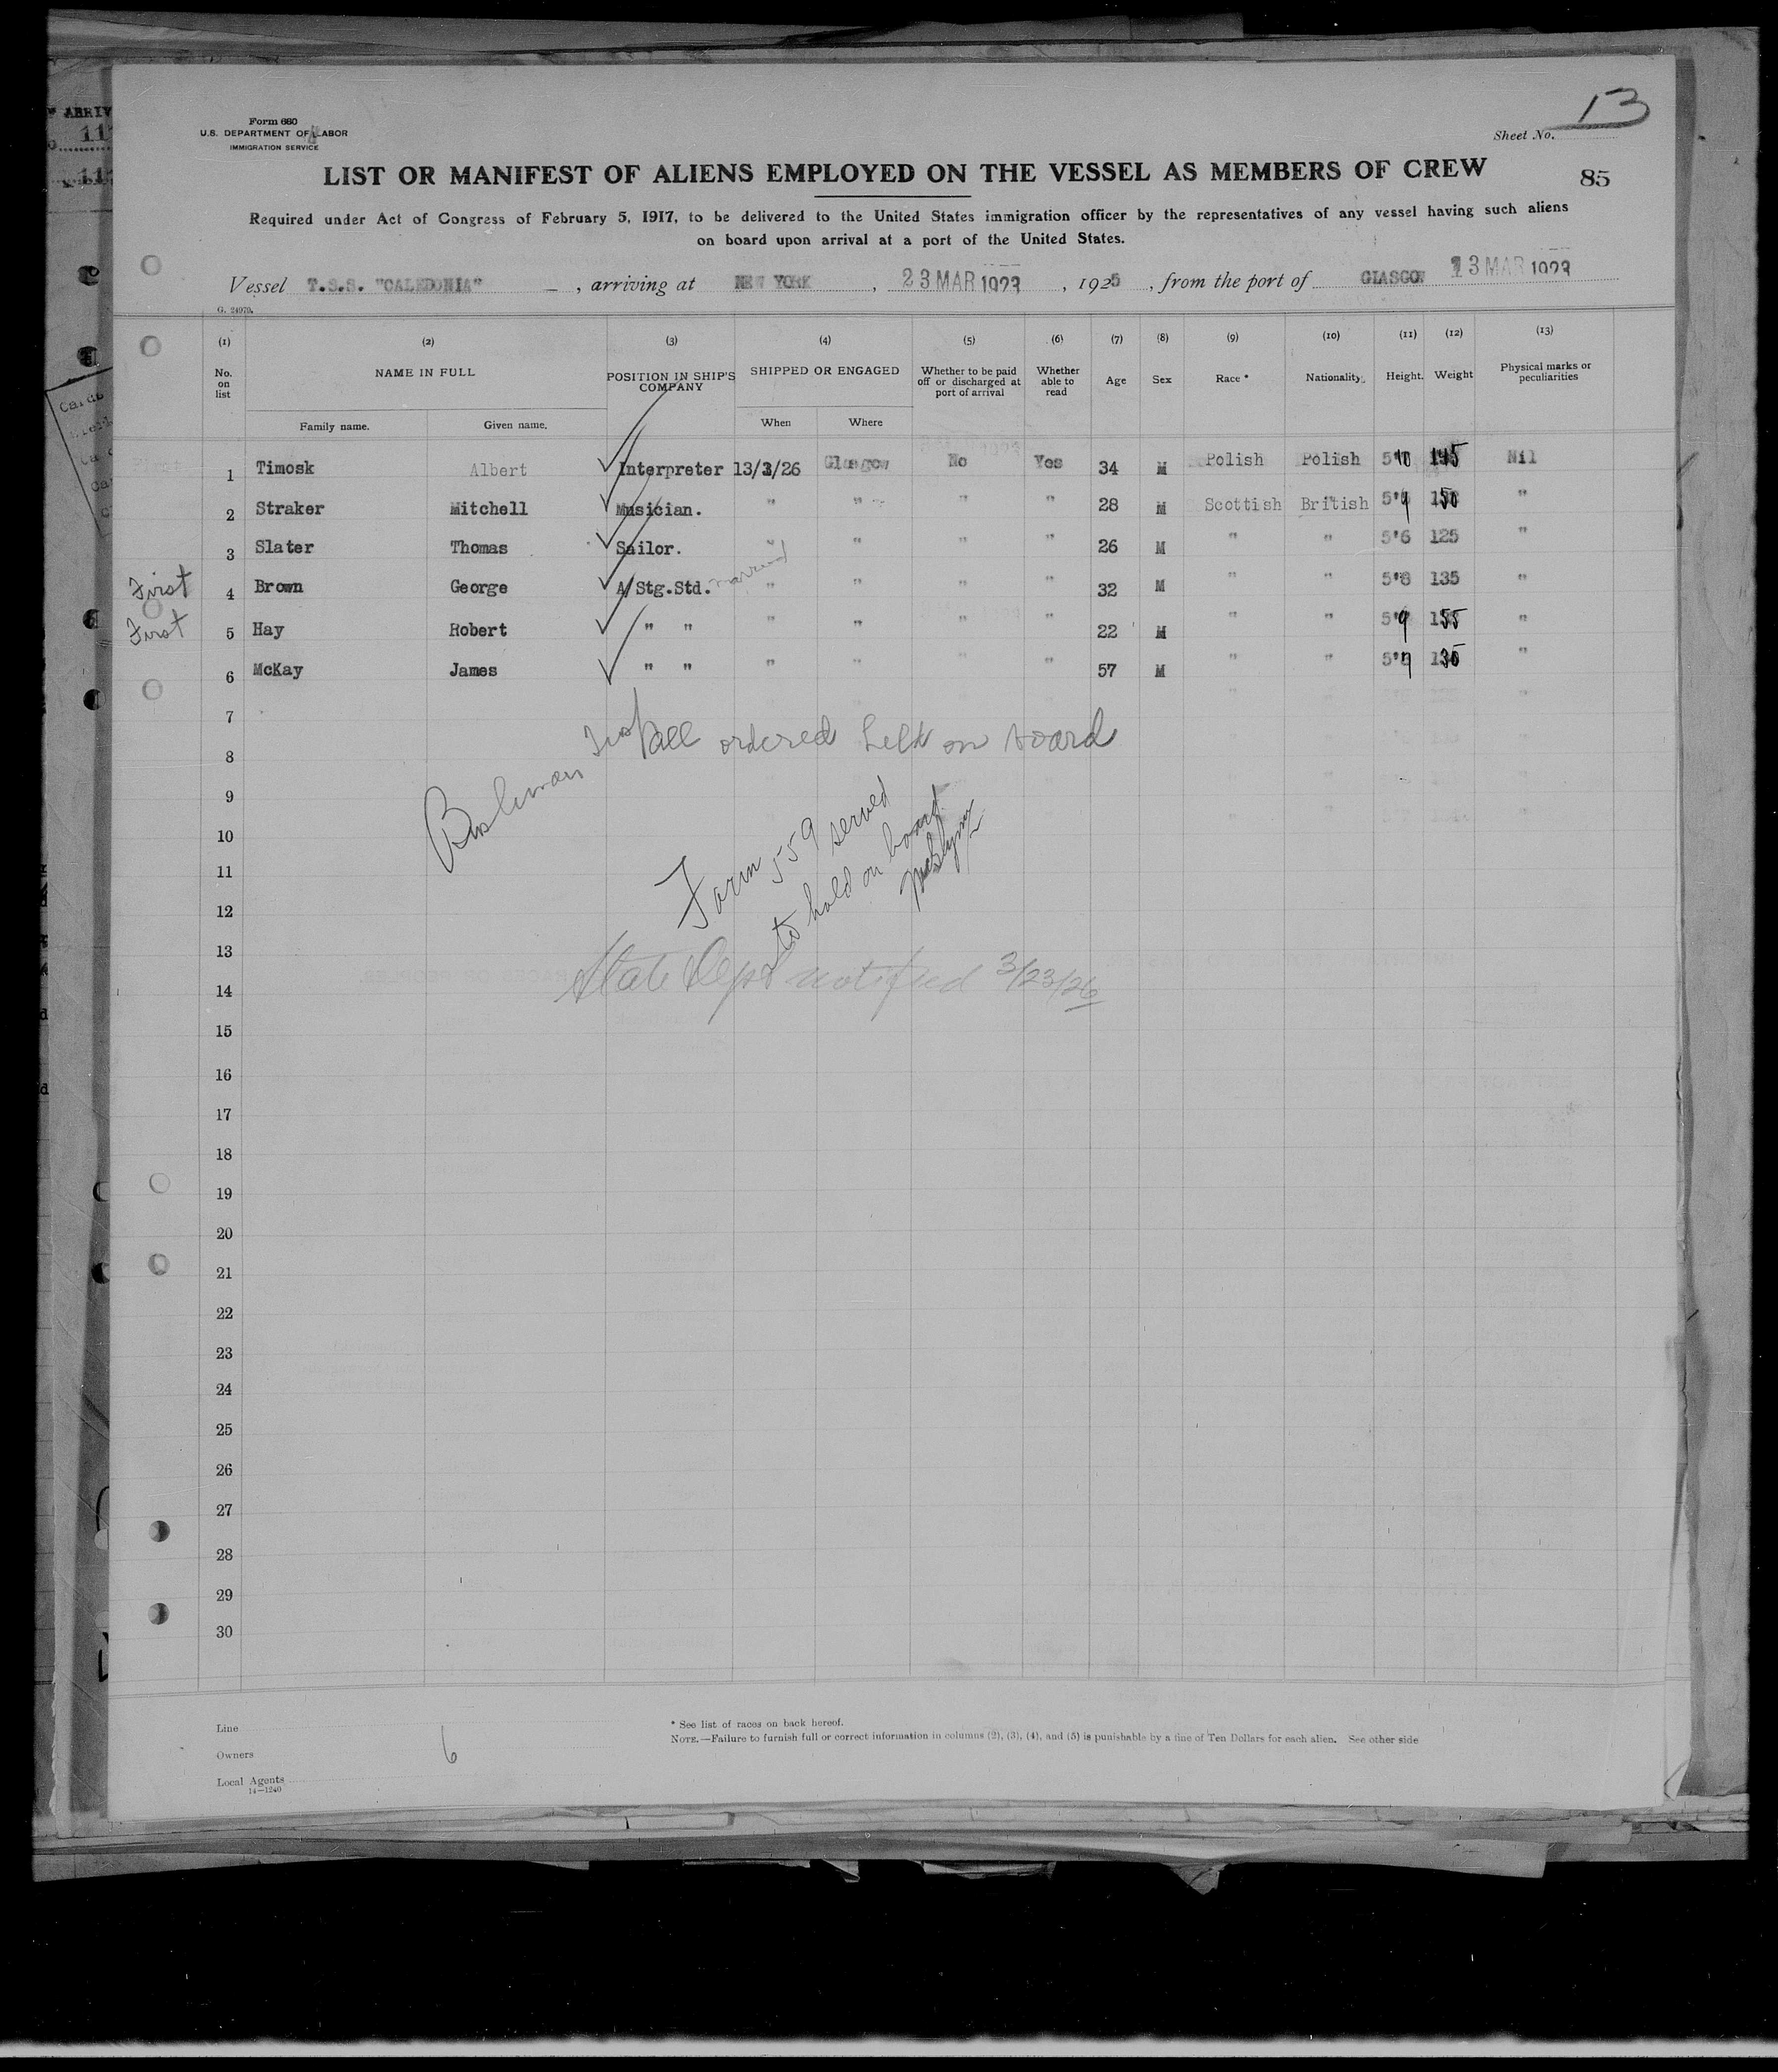 13
Form 680
U.S. DEPARTMENT OF LABOR
IMMIGRATION SERVICE
Sheet No.
LIST OR MANIFEST OF ALIENS EMPLOYED ON THE VESSEL AS MEMBERS OF CREW
85
Required under Act of Congress of February 5, 1917, to be delivered to the United States immigration officer by the representatives of any vessel having such aliens
on board upon arrival at a port of the United States.
Vessel T.S.S. "CALEDONIA", arriving at NEW YORK, 23 MAR 1923, 1925, from the port of GLASGOW 13 MAR 1923
(1) (2) (3) (4) (5) (6) (7) (8) (9) (10) (11) (12) (13)
No. on list NAME IN FULL POSITION IN SHIP'S COMPANY SHIPPED OR ENGAGED Whether to be paid off or discharged at port of arrival Whether able to read Age Sex Race * Nationality. Height. Weight Physical marks or peculiarities
Family name. Given name. When Where
1 Timosk Albert Interpreter 13/3/26 Glasgow No Yes 34 M Polish Polish 5'10 145 Nil
2 Straker Mitchell Musician. " " " " 28 M Scottish British 5'9 150 "
3 Slater Thomas Sailor. " " " " 26 M " " 5'6 125 "
First 4 Brown George A/Stg.Std. married " " " " 32 M " " 5'8 135 "
First 5 Hay Robert " " " " " " 22 M " " 5'9 155 "
6 McKay James " " " " " " 57 M " " 136 "
7
all ordered held on board
8
9
10
Form 559 served
to hold on board
11
12
13
State Dept notified 3/23/26
14
15
16
17
18
19
20
21
22
23
24
25
26
27
28
29
30
Line
Owners 6
Local Agents
14—1240
* See list of races on back hereof.
NOTE.—Failure to furnish full or correct information in columns (2), (3), (4), and (5) is punishable by a fine of Ten Dollars for each alien. See other side